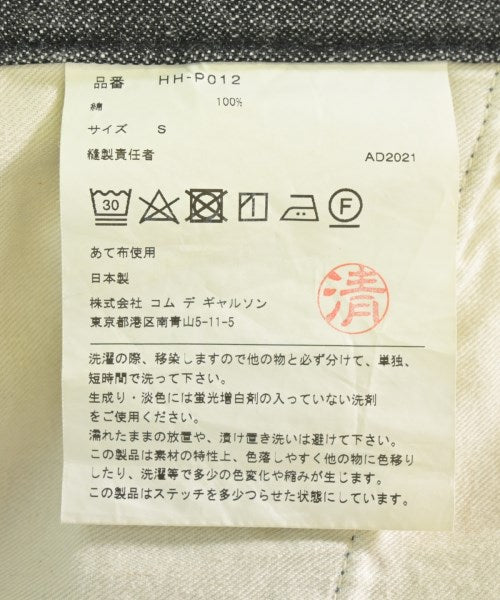 品番 HH-P012
綿 100%
サイズ S
縫製責任者 AD2021
30 F
あて布使用
日本製
株式会社 コム デ ギャルソン
東京都港区南青山5-11-5
清
洗濯の際、移染しますので他の物と必ず分けて、単独、
短時間で洗って下さい。
生成り・淡色には蛍光増白剤の入っていない洗剤
をご使用ください。
濡れたままの放置や、漬け置き洗いは避けて下さい。
この製品は素材の特性上、色落しやすく他の物に色移り
したり、洗濯等で多少の色変化や縮みが生じます。
この製品はステッチを多少つらせた状態にしています。